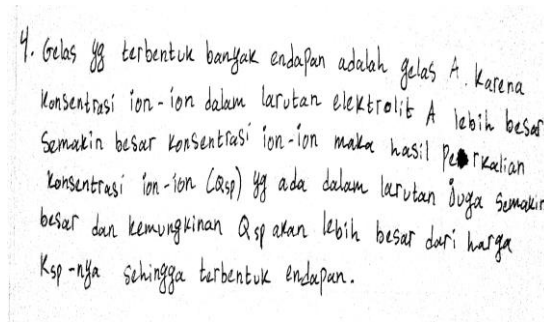 4. Gelas yg terbentuk banyak endapan adalah gelas A. Karena
Konsentrasi ion-ion dalam larutan elektrolit A lebih besar
Semakin besar konsentrasi ion-ion maka hasil Perkalian
konsentrasi ion-ion (Qsp) yg ada dalam larutan Juga Semakin
besar dan kemungkinan Qsp akan lebih besar dari harga
Ksp-nya sehingga terbentuk endapan.